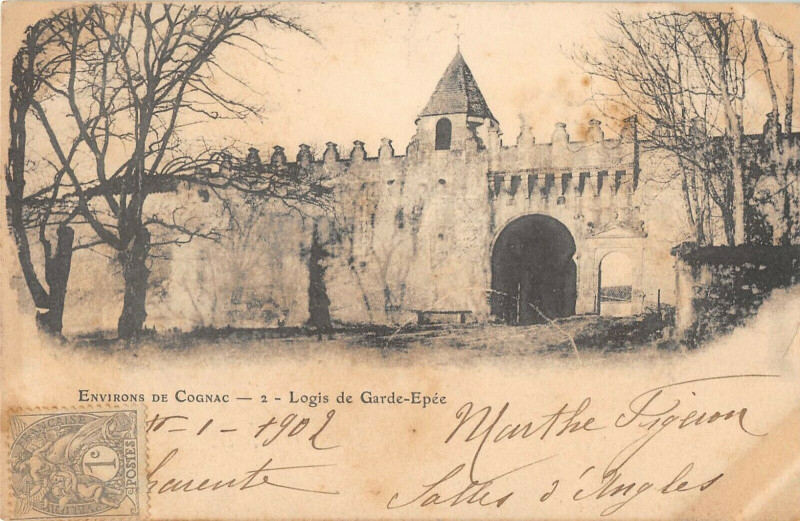 Environs de Cognac — 2 - Logis de Garde-Epée
-1-1902
Marthe Pigeron
harente
Salles d'Angles
FRANÇAISE
1c
POSTES